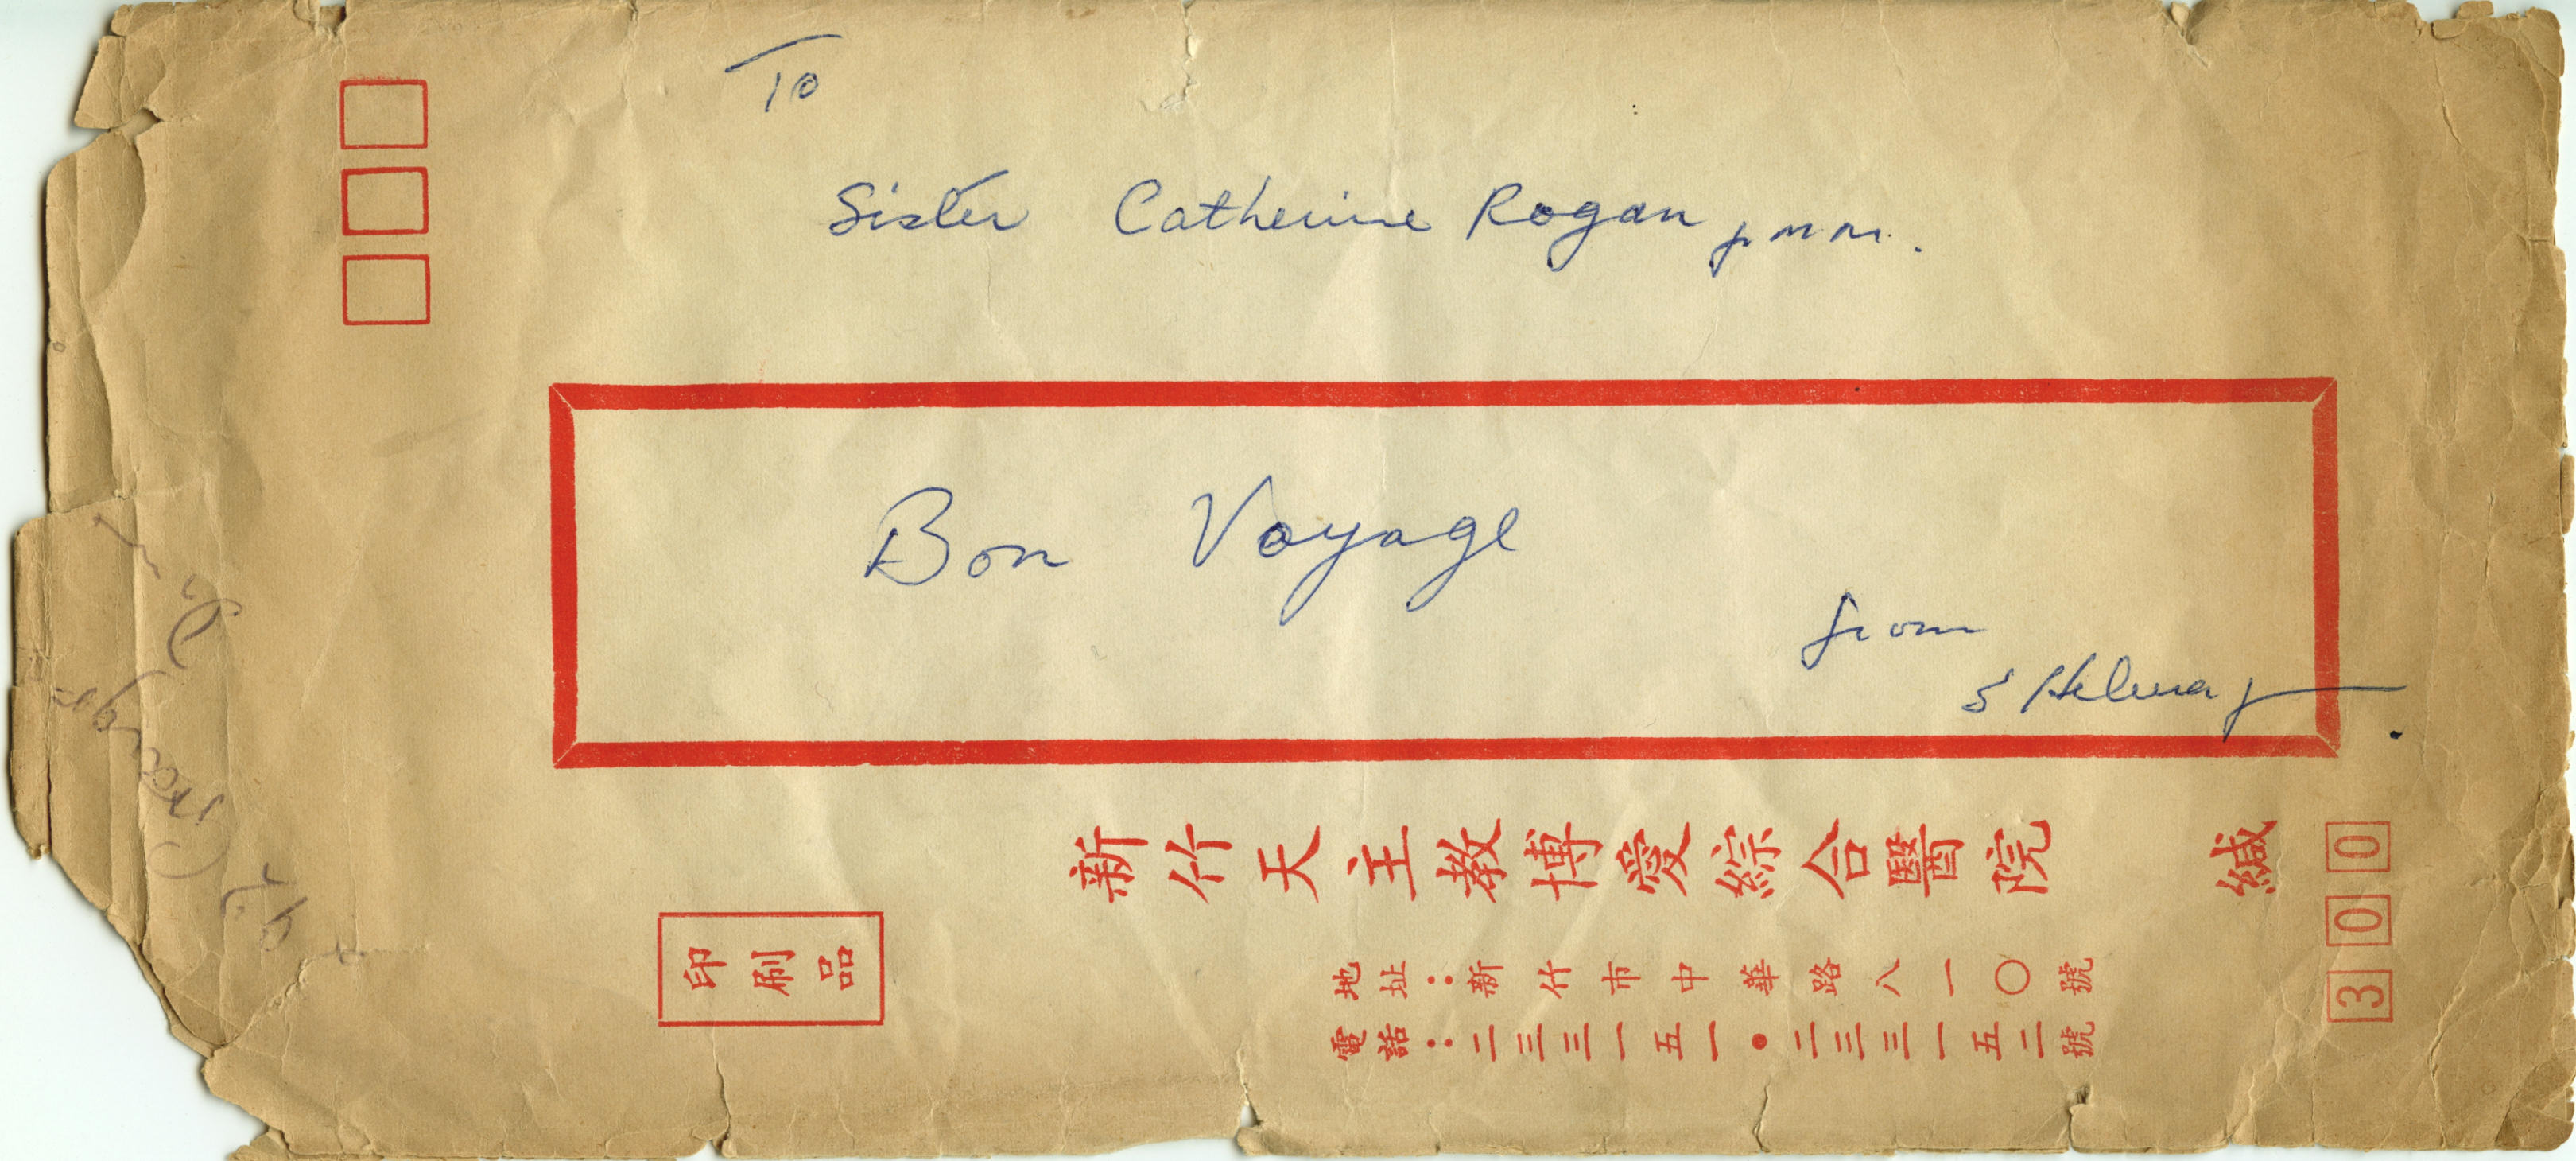 To
Sister Catherine Rogan fmm.
Bon Voyage
from
S Helena
新竹天主教博愛綜合醫院 緘
印刷品
地址：新竹市中華路八一〇號
電話：二三三一五一•二三三一五二號
300